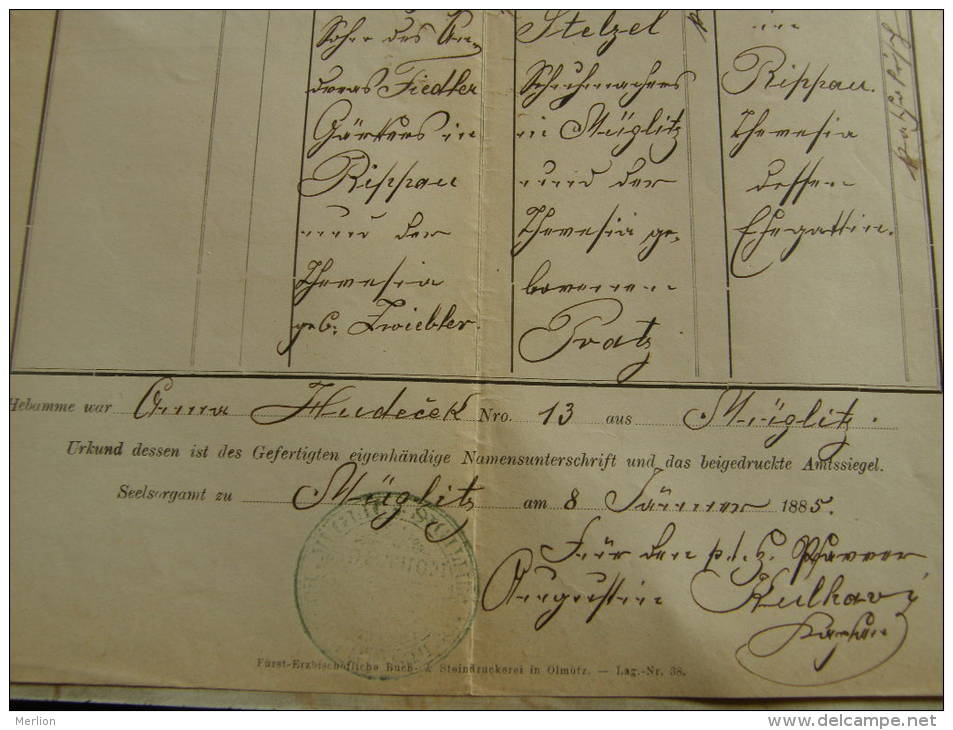 Sohn des An-
dreas Fiedler
Gärtners in
Rippau
und der
Theresia
geb. Zwiebler.
Stelzel
Schuhmachers
in Müglitz
und der
Theresia ge-
borenen
Pratz
in
Rippau.
Theresia
dessen
Ehegattin.
katholisch
Hebamme war Anna Hudeček Nro. 13 aus Müglitz.
Urkund dessen ist des Gefertigten eigenhändige Namensunterschrift und das beigedruckte Amtssiegel.
Seelsorgamt zu Müglitz am 8 Jänner 1885.
Für den p.l.z. Pfarrer
Augustin Kulhavý
Kaplan
Fürst-Erzbischöfliche Buch- & Steindruckerei in Olmütz. — Lag.-Nr. 38.
Merlion
www.delcampe.net